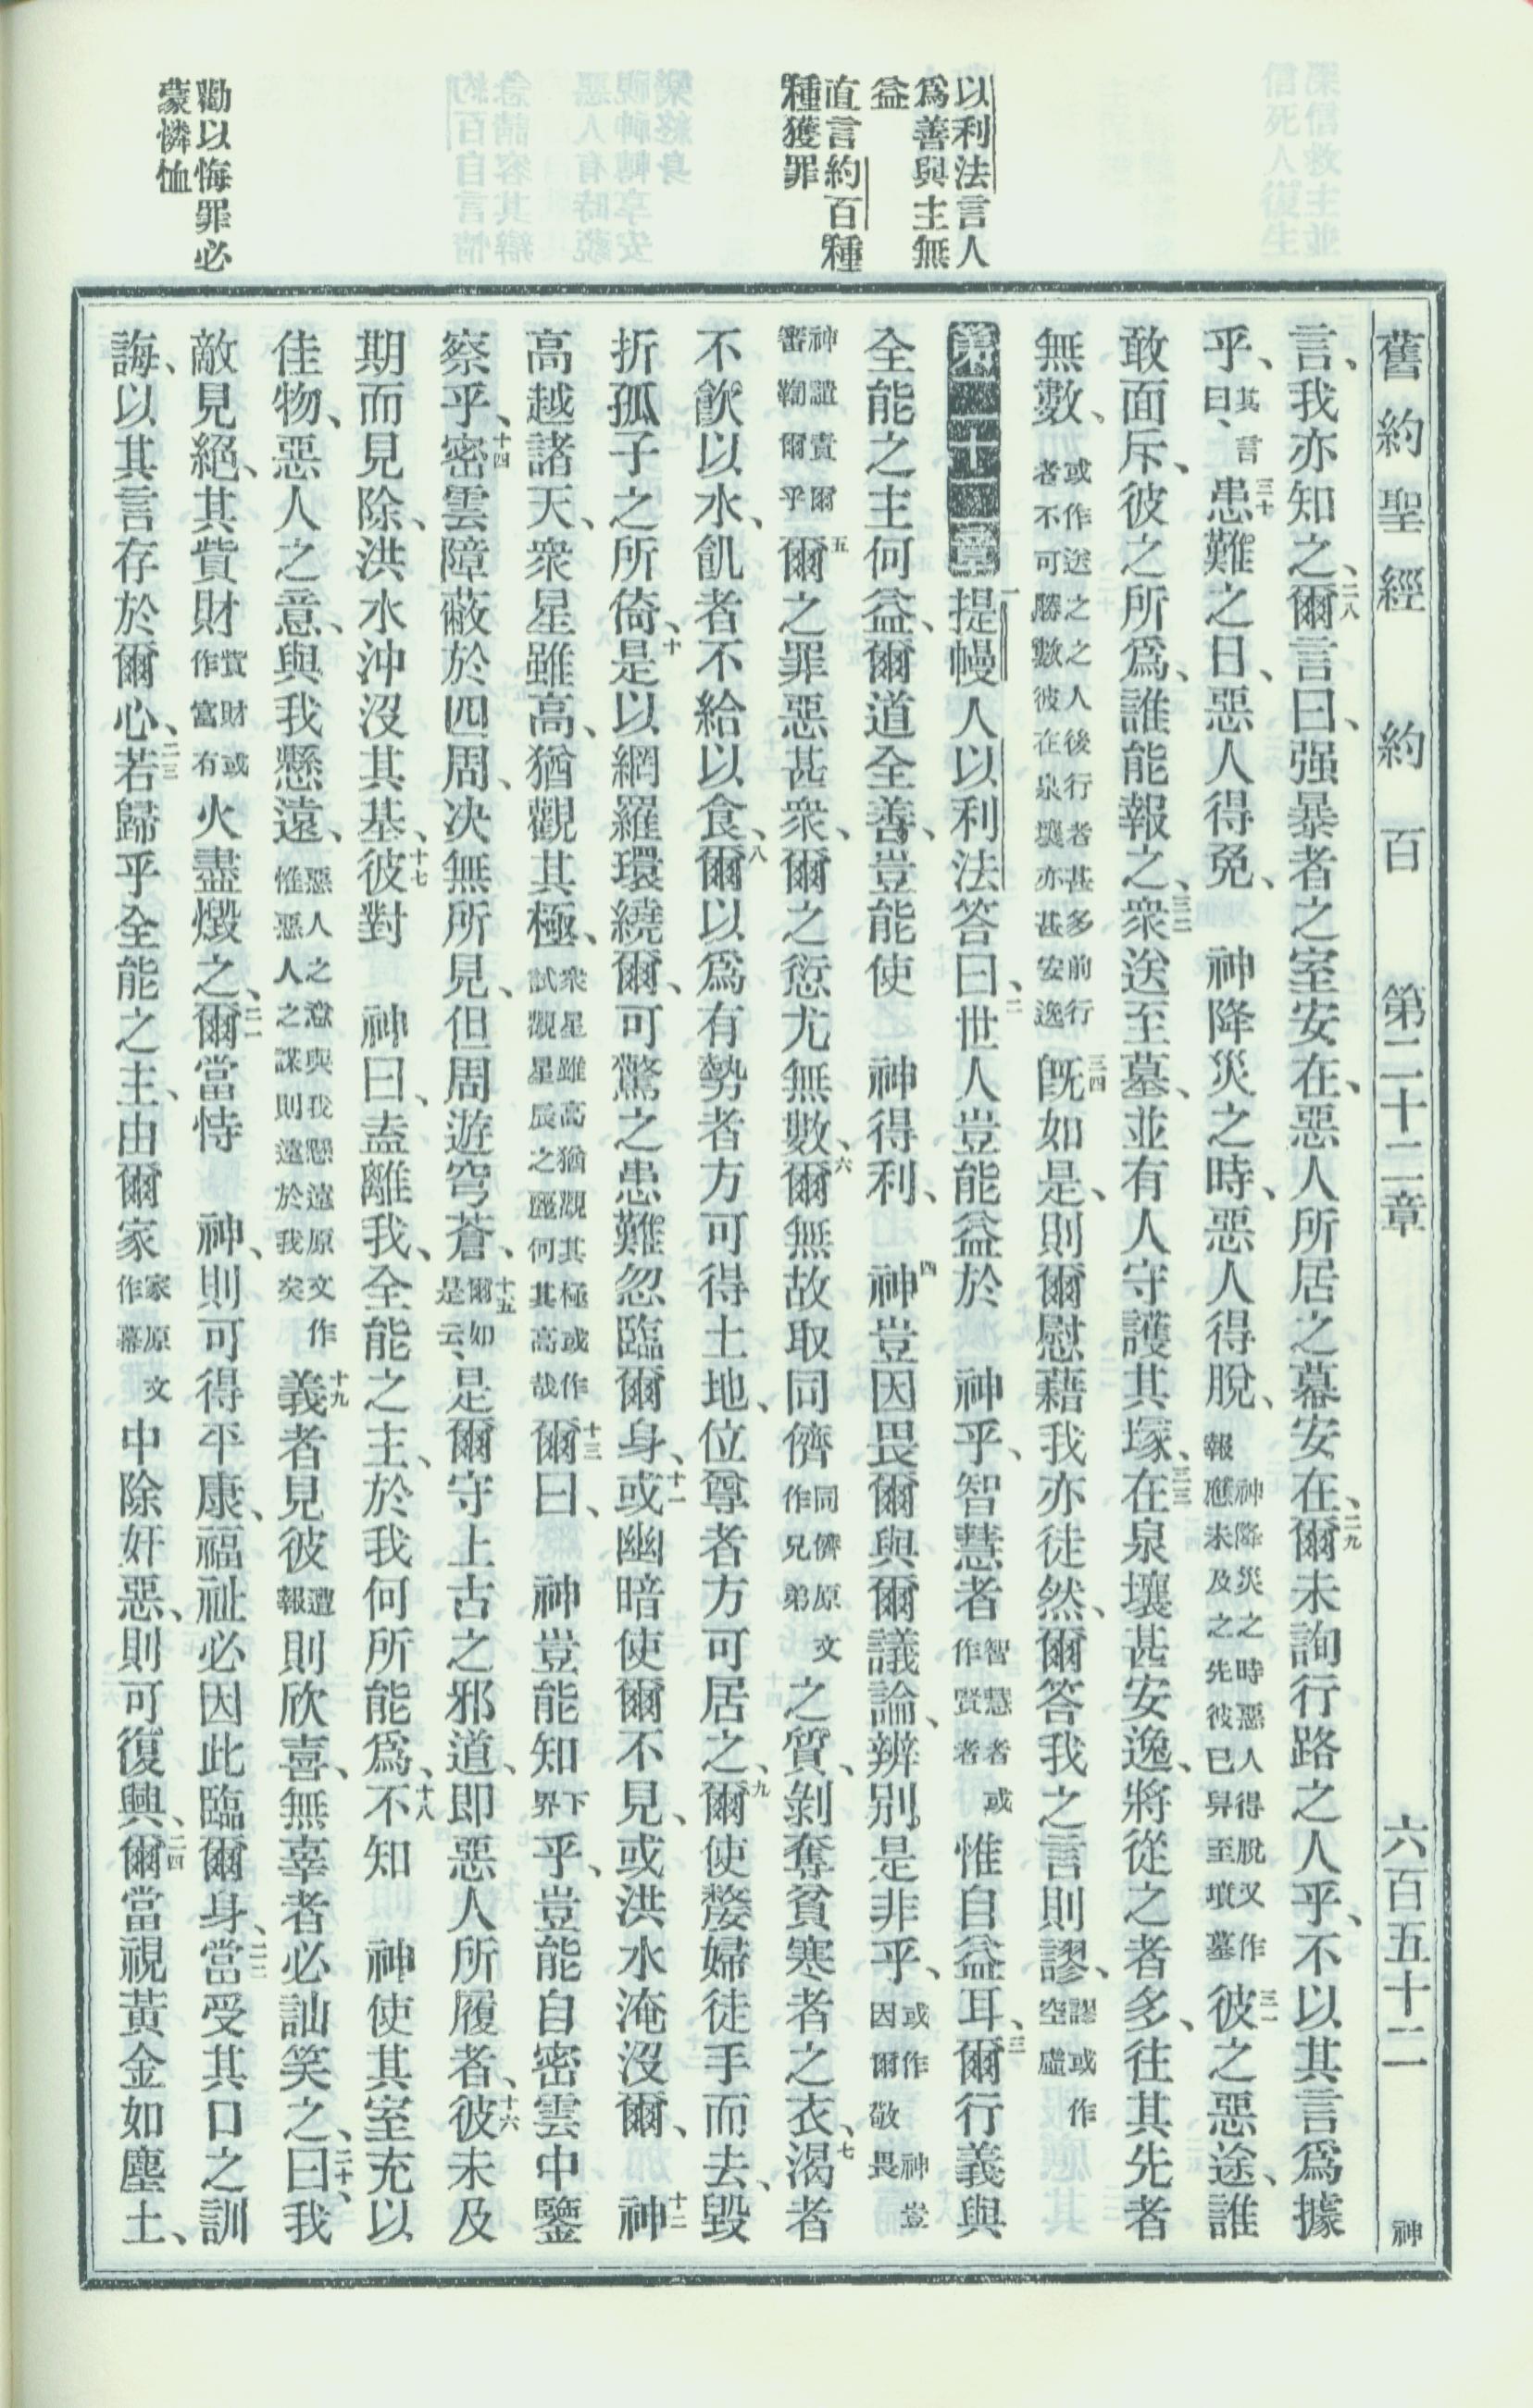 舊約聖經 約百 第二十二章 六百五十二 神
以利法言人
爲善與主無
益
直言約百種
種獲罪
勸以悔罪必
蒙憐恤
言、我亦知之、二八爾言曰、强暴者之室安在、惡人所居之幕安在、二九爾未詢行路之人乎、不以其言爲據
乎、其言曰、三十患難之日、惡人得免、 神降災之時、惡人得脫、神降災之時惡人得脫又作報應未及之先彼已舁至墳墓三一彼之惡途、誰
敢面斥、彼之所爲、誰能報之、三二衆送至墓、並有人守護其塚、三三在泉壤甚安逸、將從之者多、往其先者
無數、或作送之之人後行者甚多前行者不可勝數彼在泉壤亦甚安逸三四旣如是、則爾慰藉我亦徒然、爾答我之言則謬、謬或作空虛
第二十二章一提幔人以利法答曰、二世人豈能益於 神乎、智慧者智慧者或作賢者惟自益耳、三爾行義與
全能之主何益、爾道全善、豈能使 神得利、四 神豈因畏爾與爾議論、辨別是非乎、或作 神豈因爾敬畏
神譴責爾審鞫爾乎五爾之罪惡甚衆、爾之愆尤無數、六爾無故取同儕同儕原文作兄弟之質、剝奪貧寒者之衣、七渴者
不飮以水、飢者不給以食、八爾以爲有勢者方可得土地、位尊者方可居之、九爾使嫠婦徒手而去、毀
折孤子之所倚、十是以網羅環繞爾、可驚之患難忽臨爾身、十一或幽暗使爾不見、或洪水淹沒爾、十二 神
高越諸天、衆星雖高、猶觀其極、衆星雖高猶觀其極或作試觀星辰之麗何其高哉十三爾曰、 神豈能知下界乎、豈能自密雲中鑒
察乎、十四密雲障蔽於四周、决無所見、但周遊穹蒼、十五爾如是云、是爾守上古之邪道、即惡人所履者、十六彼未及
期而見除、洪水沖沒其基、十七彼對 神曰、盍離我、全能之主、於我何所能爲、十八不知 神使其室充以
佳物、惡人之意、與我懸遠、惡人之意與我懸遠原文作惟惡人之謀則遠於我矣十九義者見彼遭報則欣喜、無辜者必訕笑之、二十曰、我
敵見絕、其貲財貲財或作富有火盡燬之、二一爾當恃 神、則可得平康、福祉必因此臨爾身、二二當受其口之訓
誨、以其言存於爾心、二三若歸乎全能之主、由爾家家原文作幕中除奸惡、則可復興、二四爾當視黃金如塵土、